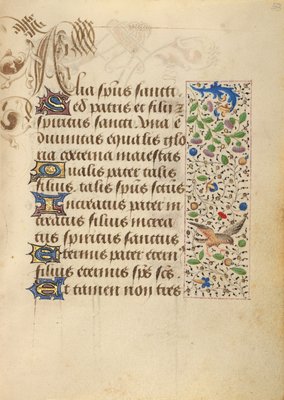 Alia spūs sancti.
Sed patris et filii ⁊
spiritus sancti. Una ē
divinitas equalis glo
ria coeterna maiestas
Qualis pater talis
filius. talis spūs sctūs
Increatus pater in
creatus filius increa
tus spiritus sanctus
Eternus pater etern̄
filius eternus sp̄s sc̄s.
Et tamen non tres